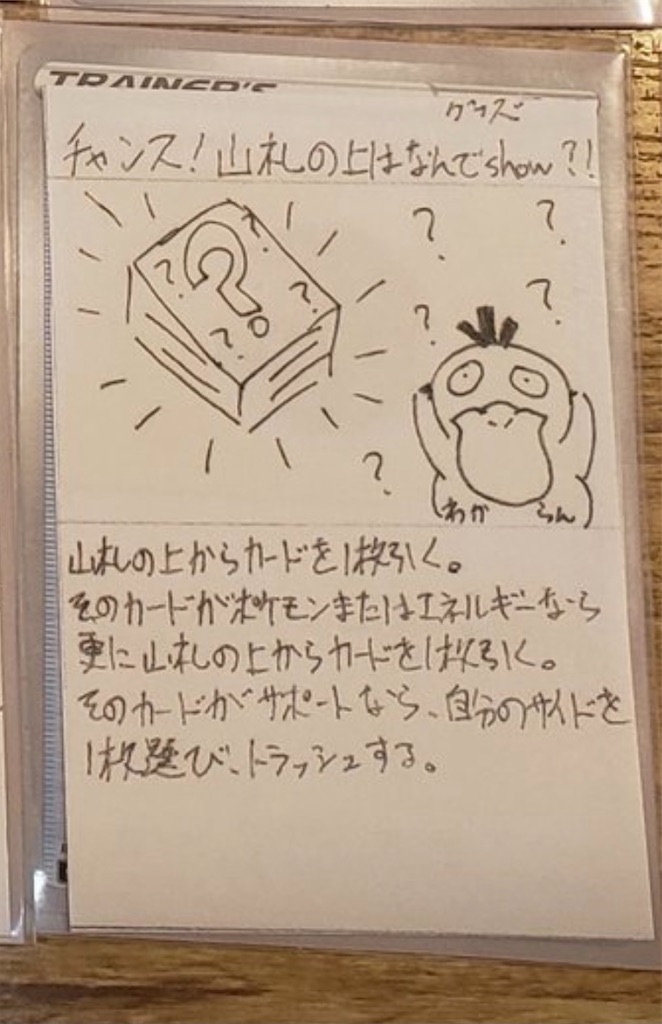 TRAINER'S
グッズ
チャンス！山札の上はなんでshow?!
? ?
? ?
? ? ? ?
?
わからん
山札の上からカードを1枚引く。
そのカードがポケモンまたはエネルギーなら
更に山札の上からカードを1枚引く。
そのカードがサポートなら、自分のサイドを
1枚選び、トラッシュする。